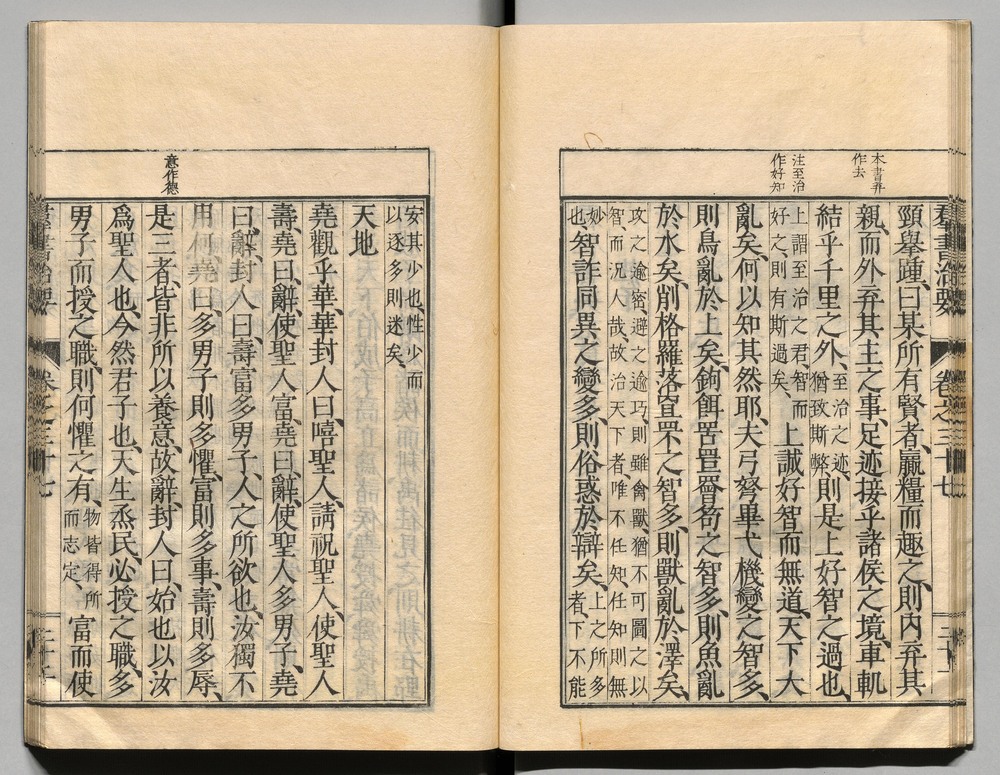 羣書治要 卷之三十七
本書弃
作去
注至治
作好知
頸舉踵、曰某所有賢者、贏糧而趣之、則內弃其
親、而外弃其主之事、足迹接乎諸侯之境、車軌
結乎千里之外、至治之迹、猶致斯弊、則是上好智之過也、
上謂至治之君、智而好之、則有斯過矣、上誠好智而無道、天下大
亂矣、何以知其然耶、夫弓弩畢弋機變之智多、
則鳥亂於上矣、鉤餌罟罾笱之智多、則魚亂
於水矣、削格羅落罝罘之智多、則獸亂於澤矣、
攻之逾密、避之逾巧、則雖禽獸、猶不可圖之以
智、而況人哉、故治天下者、唯不任知、任知則無
妙也、智詐同異之變多、則俗惑於辯矣、上之所多者、下不能
安其少也、性少而
以逐多則迷矣、
天地
堯觀乎華、華封人曰、嘻聖人、請祝聖人、使聖人
壽、堯曰、辭、使聖人富、堯曰、辭、使聖人多男子、堯
曰、辭、封人曰、壽富多男子、人之所欲也、汝獨不
用何、堯曰、多男子則多懼、富則多事、壽則多辱、
是三者、皆非所以養意、故辭、封人曰、始也以汝
爲聖人也、今然君子也、天生烝民、必授之職、多
男子而授之職、則何懼之有、物皆得所而志定、富而使
意作德
卷之三十七